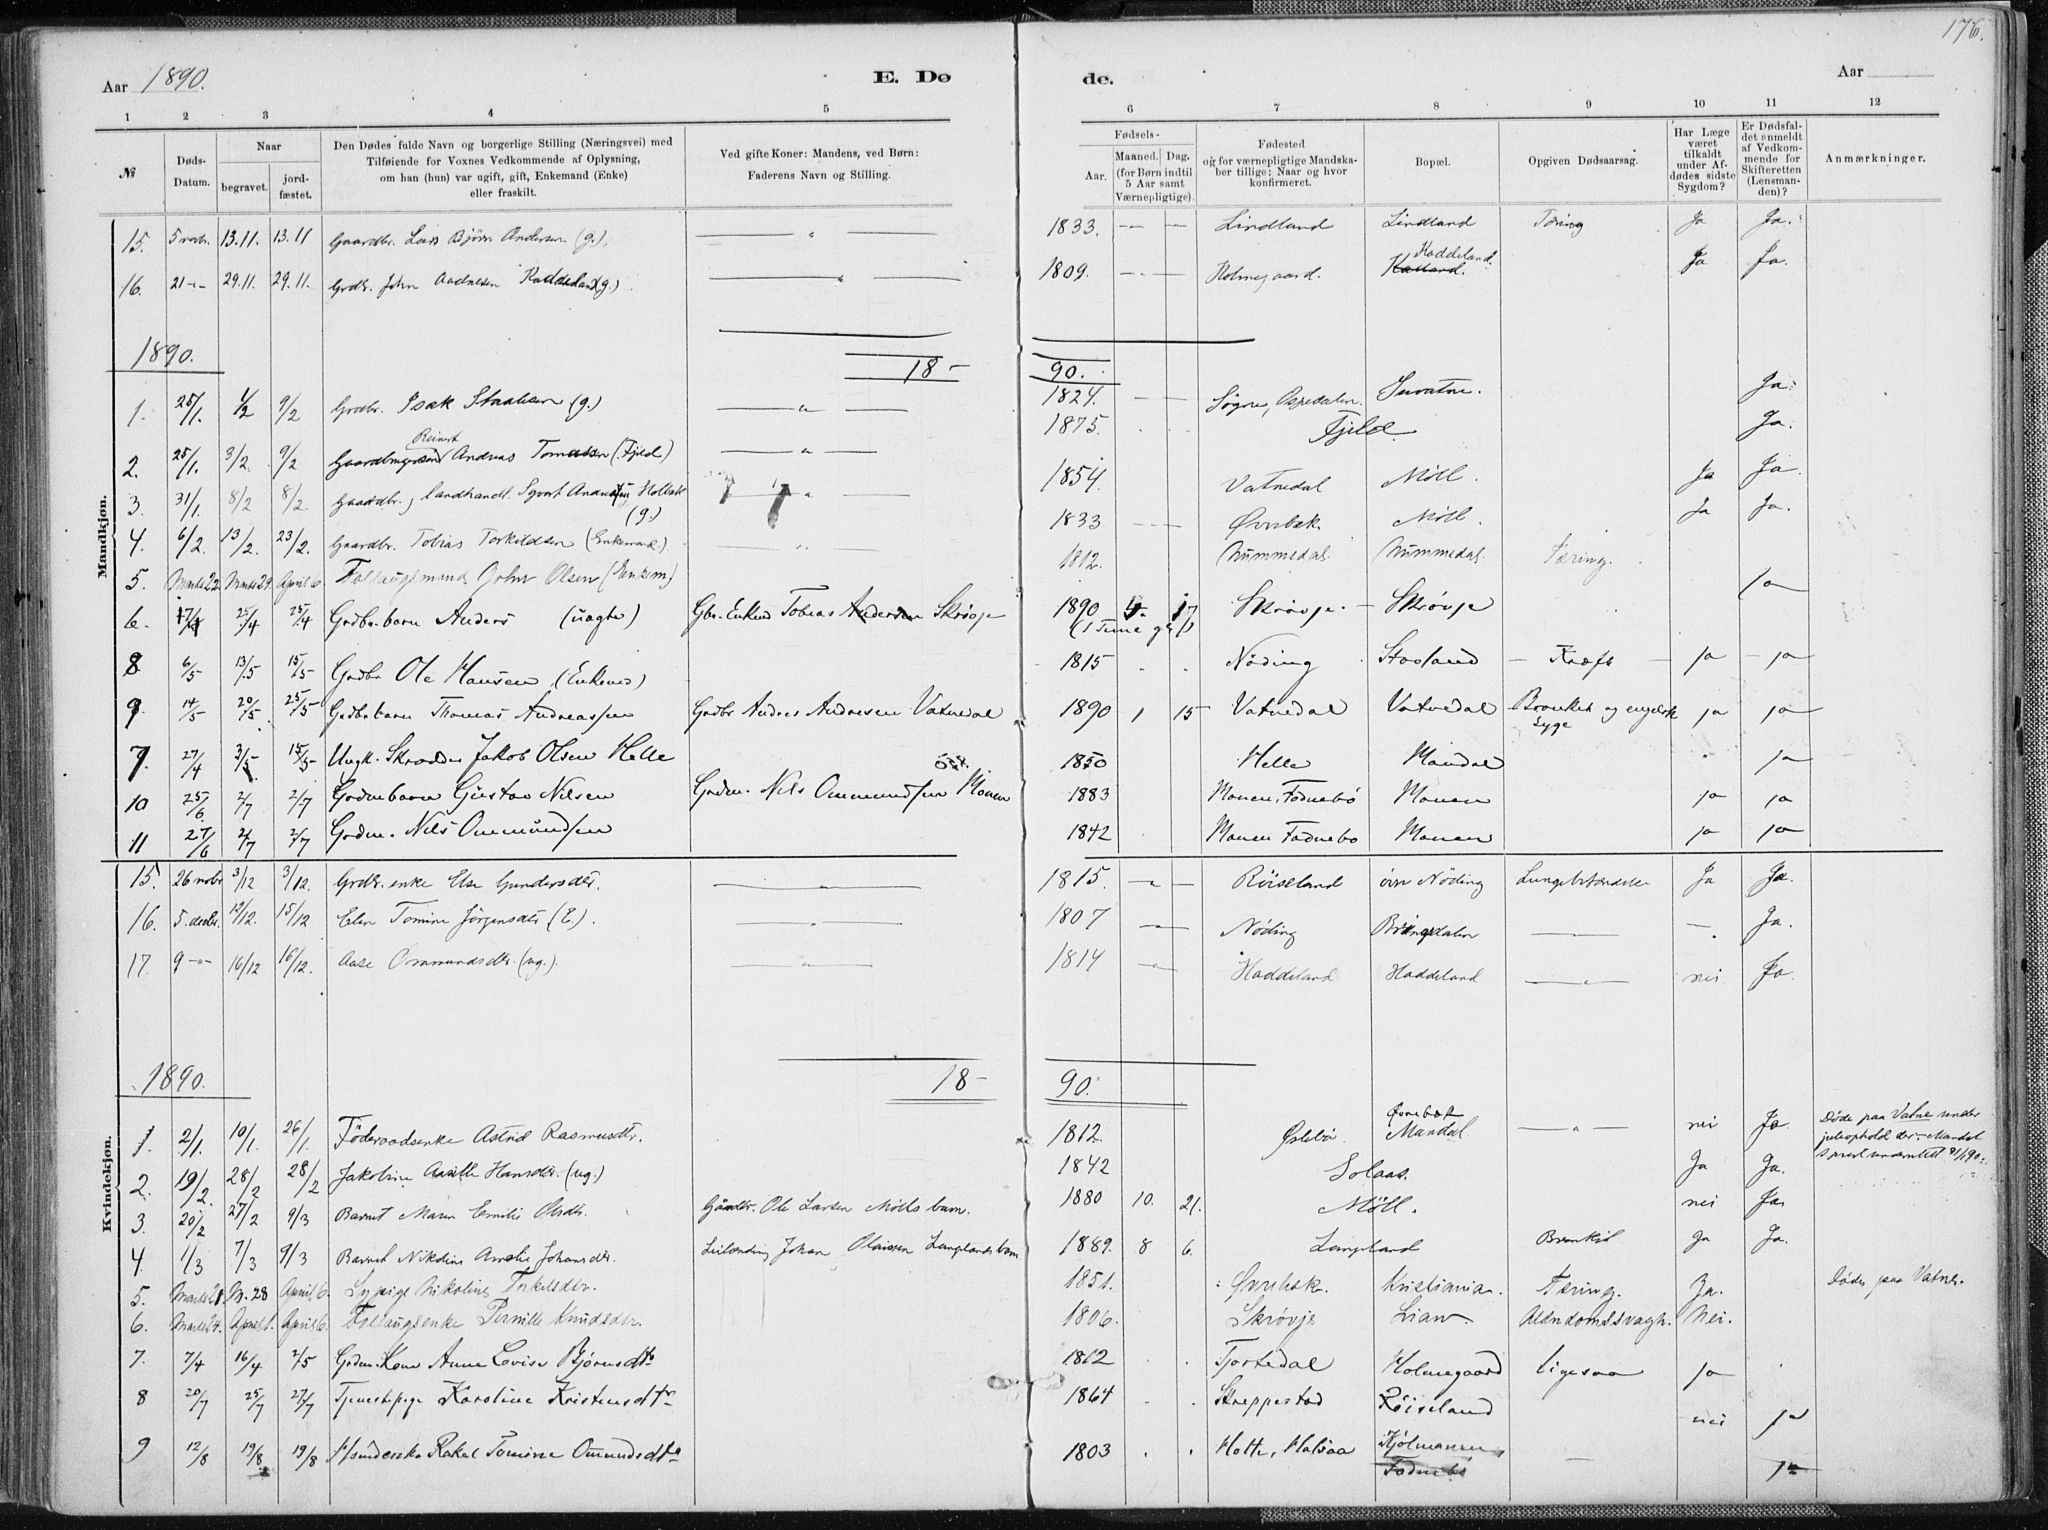 176.
Aar 1890. E. Dø de. Aar
1 2 3 4 5 6 7 8 9 10 11 12
№
Døds-Datum.
Naar
begravet.
jordfæstet.
Den Dødes fulde Navn og borgerlige Stilling (Næringsvei) med
Tilføiende for Voxnes Vedkommende af Oplysning,
om han (hun) var ugift, gift, Enkemand (Enke)
eller fraskilt.
Ved gifte Koner: Mandens, ved Børn:
Faderens Navn og Stilling.
Fødsels-
Aar.
Maaned. Dag.
(for Børn indtil
5 Aar samt
Værnepligtige).
Fødested
og for værnepligtige Mandska-
ber tillige: Naar og hvor
konfirmeret.
Bopæl.
Opgiven Dødsaarsag.
Har Læge
været
tilkaldt
under Af-
dødes sidste
Sygdom?
Er Dødsfal-
det anmeldt
af Vedkom-
mende for
Skifteretten
(Lensman-
den)?
Anmærkninger.
Mandkjøn.
15. 5 novbr. 13.11. 13.11 Gaardbr. Lars Bjørn Andersen (g.). — " — 1833. — — Lindland Lindland Tæring Ja Ja.
16. 21 -"- 29.11. 29.11. Grdbr. John Aadnesen Haddeland (g.) — " — 1809. — — Holmegaard. Haddeland. Ja Ja.
1890. 18 - 90.
1. 25/1. 1/2 9/2 Grdbr. Isak Staalesen (g.) — " — 1824. — — Søgne, Ospedalen. Ja.
2. 25/1. 3/2. 9/2 Gaardbrugersøn Reinert Andreas Tomassen (Fjeld) — " — 1875. Fjeld. Ja.
3. 31/1. 8/2 8/2. Gaardbr. Landhandl. Syvert (g.) — " — 1854. Vatnedal Möll. Ja Ja.
4. 6/2. 13/2. 23/2. Gaardbr. Tobias Torkildsen (Enkemand). — " — 1833 — — Øvrebæk. Möll. Ja Ja.
5. Marts 22. Marts 29. April 6. John Olsen (Enkem.) 1812. Nummedal. Nummedal. Tæring.
6. 17/4 25/4 25/4 Grdbr.barn Anders (uægte) Gbr. Enkem. Tobias Andersen Skrøvje 1890 4. 17 Skrøvje. — Skrövje ja
8 6/5 13/5 15/5 Grdbr Ole Hansen (Enkemd) 1815 Nöding Stosland — Kræft — ja — ja
9. 14/5 20/5 25/5 Grdbr.barn Thomas Andreassen Grdbr Andres Andresen Vatnedal 1890 1 15 Vatnedal Vatnedal Bronkit og engelsk Syge ja ja
7. 27/4 3/5 15/5 Ungk. Skrædder Jakob Olsen Helle 1850 Helle Mandal " ja
10 25/6 2/7 2/7 Grdm.barn Gustav Nilsen Grdm. Nils Ommundsen Monen 1883 Monen, Fodnebö Monen ja ja
11 27/6 2/7 2/7 Grdm. Nils Ommundsen 1842 Monen Fodnebo Monen ja ja
Kvindekjøn.
15. 26 novbr 3/12 3/12. Grdbr. enke Else Gundersdtr. — " — 1815. — " — Röiseland övre Nöding Lungebetændelse Ja Ja.
16. 5. decbr. 12/12. 15/12 Elen Tomine Jörgensdtr (E.). — " — 1807 — " — Nöding — — Ja.
17. 9 -"- 16/12 16/12. Aase Ommundsdtr. (ug.). — " — 1814 — " — Haddeland Haddeland — " — nei Ja.
1890. 18 - 90.
1. 2/1. 10/1. 26/1. Föderaadsenke Astrid Rasmusdtr. 1812. Øslebö. Øvrebæk Mandal. — " — nei Ja Döde paa Vatne under juleophold der. — Mandal
2. 19/2. 28/2 28/2 Jakobine Hansdtr. (ug.) 1842 Solaas. Ja Ja.
3. 20/2 27/2 9/3 Barnet Maren Emilie Olsdtr. Gaardbr. Ole Larsen Mölls barn. 1880 10. 21. Möll. nei Ja.
4. 1/3 7/3 9/3 Barnet Nikoline Amalie Johansdtr. Leilænding Johan Olaissen Langlands barn 1889. 8 6. Langland Bronkit Ja Ja.
5. Marts 21. M. 28 April 6. Sypige Nikoline Torkelsdtr. 1851. Øvrebæk. Kristiania. Tæring. Ja. Döde paa Vatne.
6. Marts 24. April 1. April 6. Pernille Knudsdtr. 1806. Skrövje Lian. Alderdomssvagh. Nei.
7. 7/4 16/4 2/5 Grdm. Kone Anne Lovise Björnsdtr 1812 Tjortedal Holmegaard ligesaa ja
8 20/7 25/7 27/7 Tjenestepige Karoline Kristensdtr 1864 Skeppestad Röiseland nei ja
9 12/8 19/8 19/8 Rakel Tomine Omundsdtr 1803 Holte, Halsaa Kjølmannen Fodnebö — ja